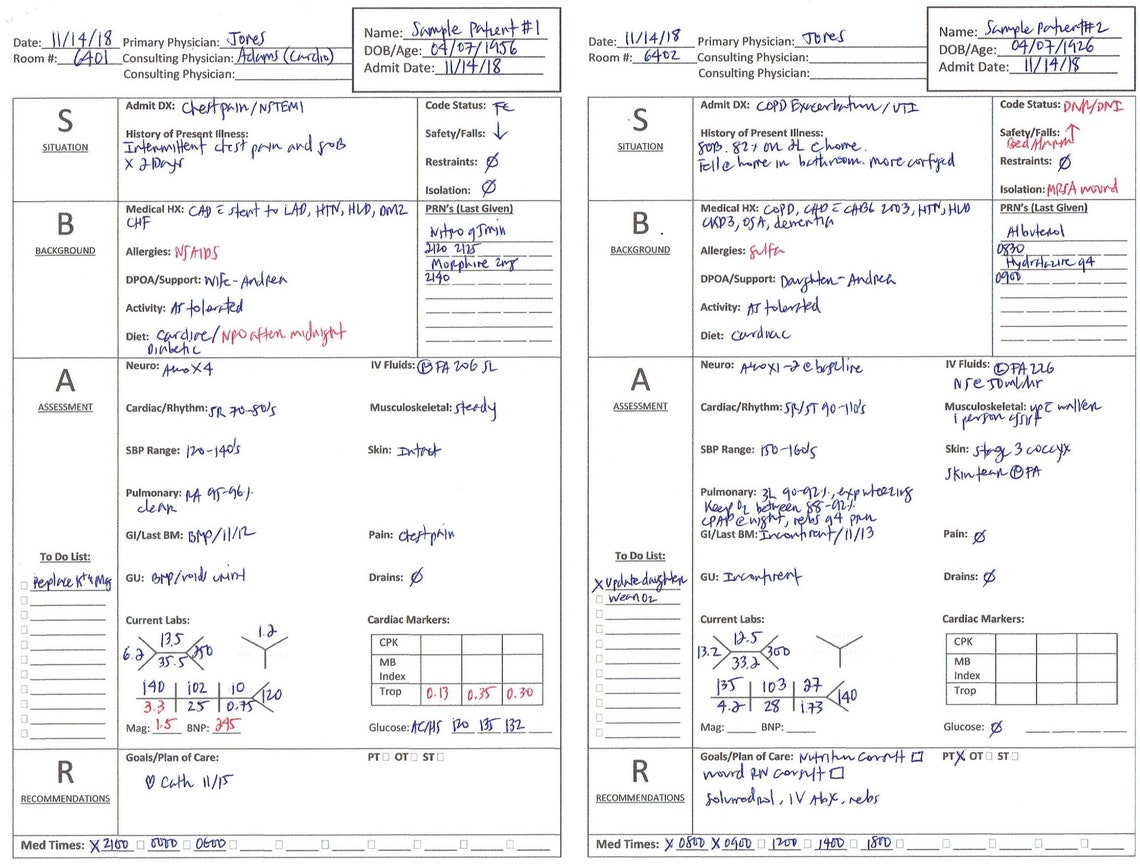 Date: 11/14/18 Primary Physician: Jones
Room #: 6401 Consulting Physician: Adams (Cardio)
Consulting Physician:
Name: Sample Patient #1
DOB/Age: 04/07/1956
Admit Date: 11/14/18
S
SITUATION
Admit DX: Chest pain/NSTEMI
History of Present Illness:
Intermittent chest pain and SOB
x 2 Days
Code Status: FC
Safety/Falls: ↓
Restraints: Ø
Isolation: Ø
B
BACKGROUND
Medical HX: CAD c̄ stent to LAD, HTN, HLD, DM2
CHF
Allergies: NSAIDS
DPOA/Support: Wife - Andrea
Activity: As tolerated
Diet: Cardiac/NPO after midnight
Diabetic
PRN's (Last Given)
Nitro q5min
2120 2125
Morphine 2mg
2140
A
ASSESSMENT
Neuro: A+O x4
IV Fluids: Ⓡ FA 20G SL
Cardiac/Rhythm: SR 70-80's
Musculoskeletal: Steady
SBP Range: 120-140's
Skin: Intact
Pulmonary: RA 95-96%
clear
GI/Last BM: BMP/11/12
Pain: Chest pain
GU: BMP/voids urinal
Drains: Ø
To Do List:
Replace K+ & Mag
Current Labs:
13.5
6.2 250
35.5
1.2
140 102 10
120
3.3 25 0.75
Mag: 1.5 BNP: 245
Cardiac Markers:
CPK
MB
Index
Trop 0.13 0.35 0.30
Glucose: AC/HS 120 135 132
R
RECOMMENDATIONS
Goals/Plan of Care:
♡ Cath 11/15
PT☐ OT☐ ST☐
Med Times: X 2100 ☐ 0000 ☐ 0600 ☐ ☐ ☐ ☐ ☐ ☐
Date: 11/14/18 Primary Physician: Jones
Room #: 6402 Consulting Physician:
Consulting Physician:
Name: Sample Patient #2
DOB/Age: 04/07/1926
Admit Date: 11/14/18
S
SITUATION
Admit DX: COPD Exacerbation/UTI
History of Present Illness:
SOB. 82% on 2L @ home.
Fell @ home in bathroom. more confused
Code Status: DNR/DNI
Safety/Falls: ↑
Bed Alarm
Restraints: Ø
Isolation: MRSA wound
B
BACKGROUND
Medical HX: COPD, CAD c̄ CABG 2003, HTN, HLD
CKD3, OSA, dementia
Allergies: Sulfa
DPOA/Support: Daughter - Andrea
Activity: As tolerated
Diet: Cardiac
PRN's (Last Given)
Albuterol
0830
Hydralazine q4
0900
A
ASSESSMENT
Neuro: A+O x1-2 @ baseline
IV Fluids: Ⓛ FA 22G
NS @ 50ml/hr
Cardiac/Rhythm: SR/ST 90-110's
Musculoskeletal: up c̄ walker
1 person assist
SBP Range: 150-160's
Skin: Stage 3 coccyx
Skin tear Ⓡ FA
Pulmonary: 3L 90-92%, exp wheezing
Keep O2 between 88-92%
CPAP @ night, nebs q4 prn
GI/Last BM: Incontinent/11/13
Pain: Ø
GU: Incontinent
Drains: Ø
To Do List:
X update daughter
wean O2
Current Labs:
12.5
13.2 300
33.2
135 103 27
140
4.2 28 1.73
Mag: BNP:
Cardiac Markers:
CPK
MB
Index
Trop
Glucose: Ø
R
RECOMMENDATIONS
Goals/Plan of Care: Nutrition Consult ☐
wound RN consult ☐
Solumedrol, IV Abx, nebs
PT X OT☐ ST☐
Med Times: X 0800 X 0900 ☐ 1200 ☐ 1400 ☐ 1800 ☐ ☐ ☐ ☐